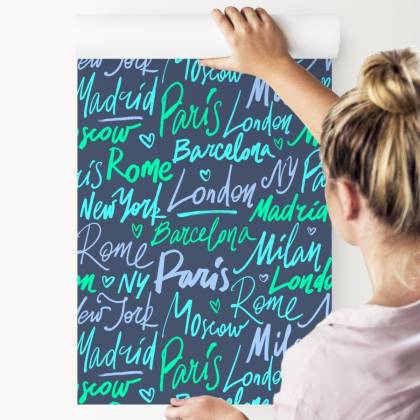 New York Moscow
Madrid Paris Mil
Moscow London
Paris Rome Barcelona
New York London NY Pa
Rome Barcelona Madrid
Milan
NY Paris London
New York Moscow Rome M
Madrid Paris Mila
Moscow London